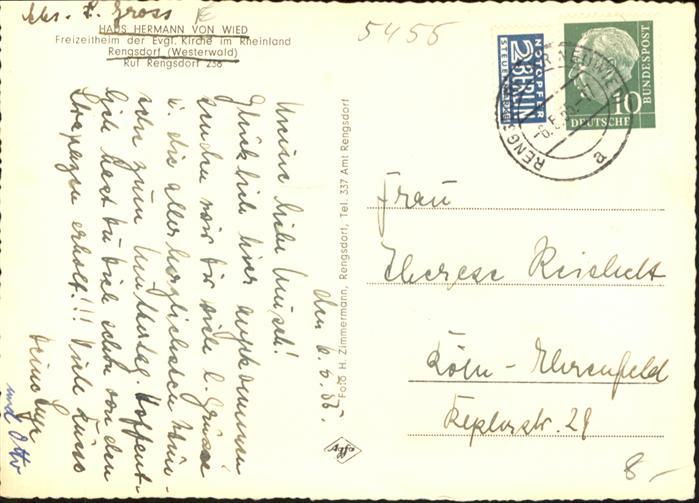 Abs. L. Gross
HAUS HERMANN VON WIED
Freizeitheim der Evgl. Kirche im Rheinland
Rengsdorf (Westerwald)
Ruf Rengsdorf 238
5455
NOTOPFER
2 BERLIN
STEUERMARKE
DEUTSCHE
BUNDESPOST
10
RENGSDORF ÜBER NEUWIED
a
den 6.5.55.
Meine liebe Musch!
Glücklich hier angekommen
senden wir Dir viele l. Grüsse
u. die allerherzlichsten Wün-
sche zum Muttertag. Hoffent-
lich hast du dich schon von den
Strapazen erholt!!! Viele Küsse
Deine
und Otto
Foto H. Zimmermann, Rengsdorf, Tel. 337 Amt Rengsdorf
Frau
Therese
Köln-Ehrenfeld
Keplerstr. 29
8.-